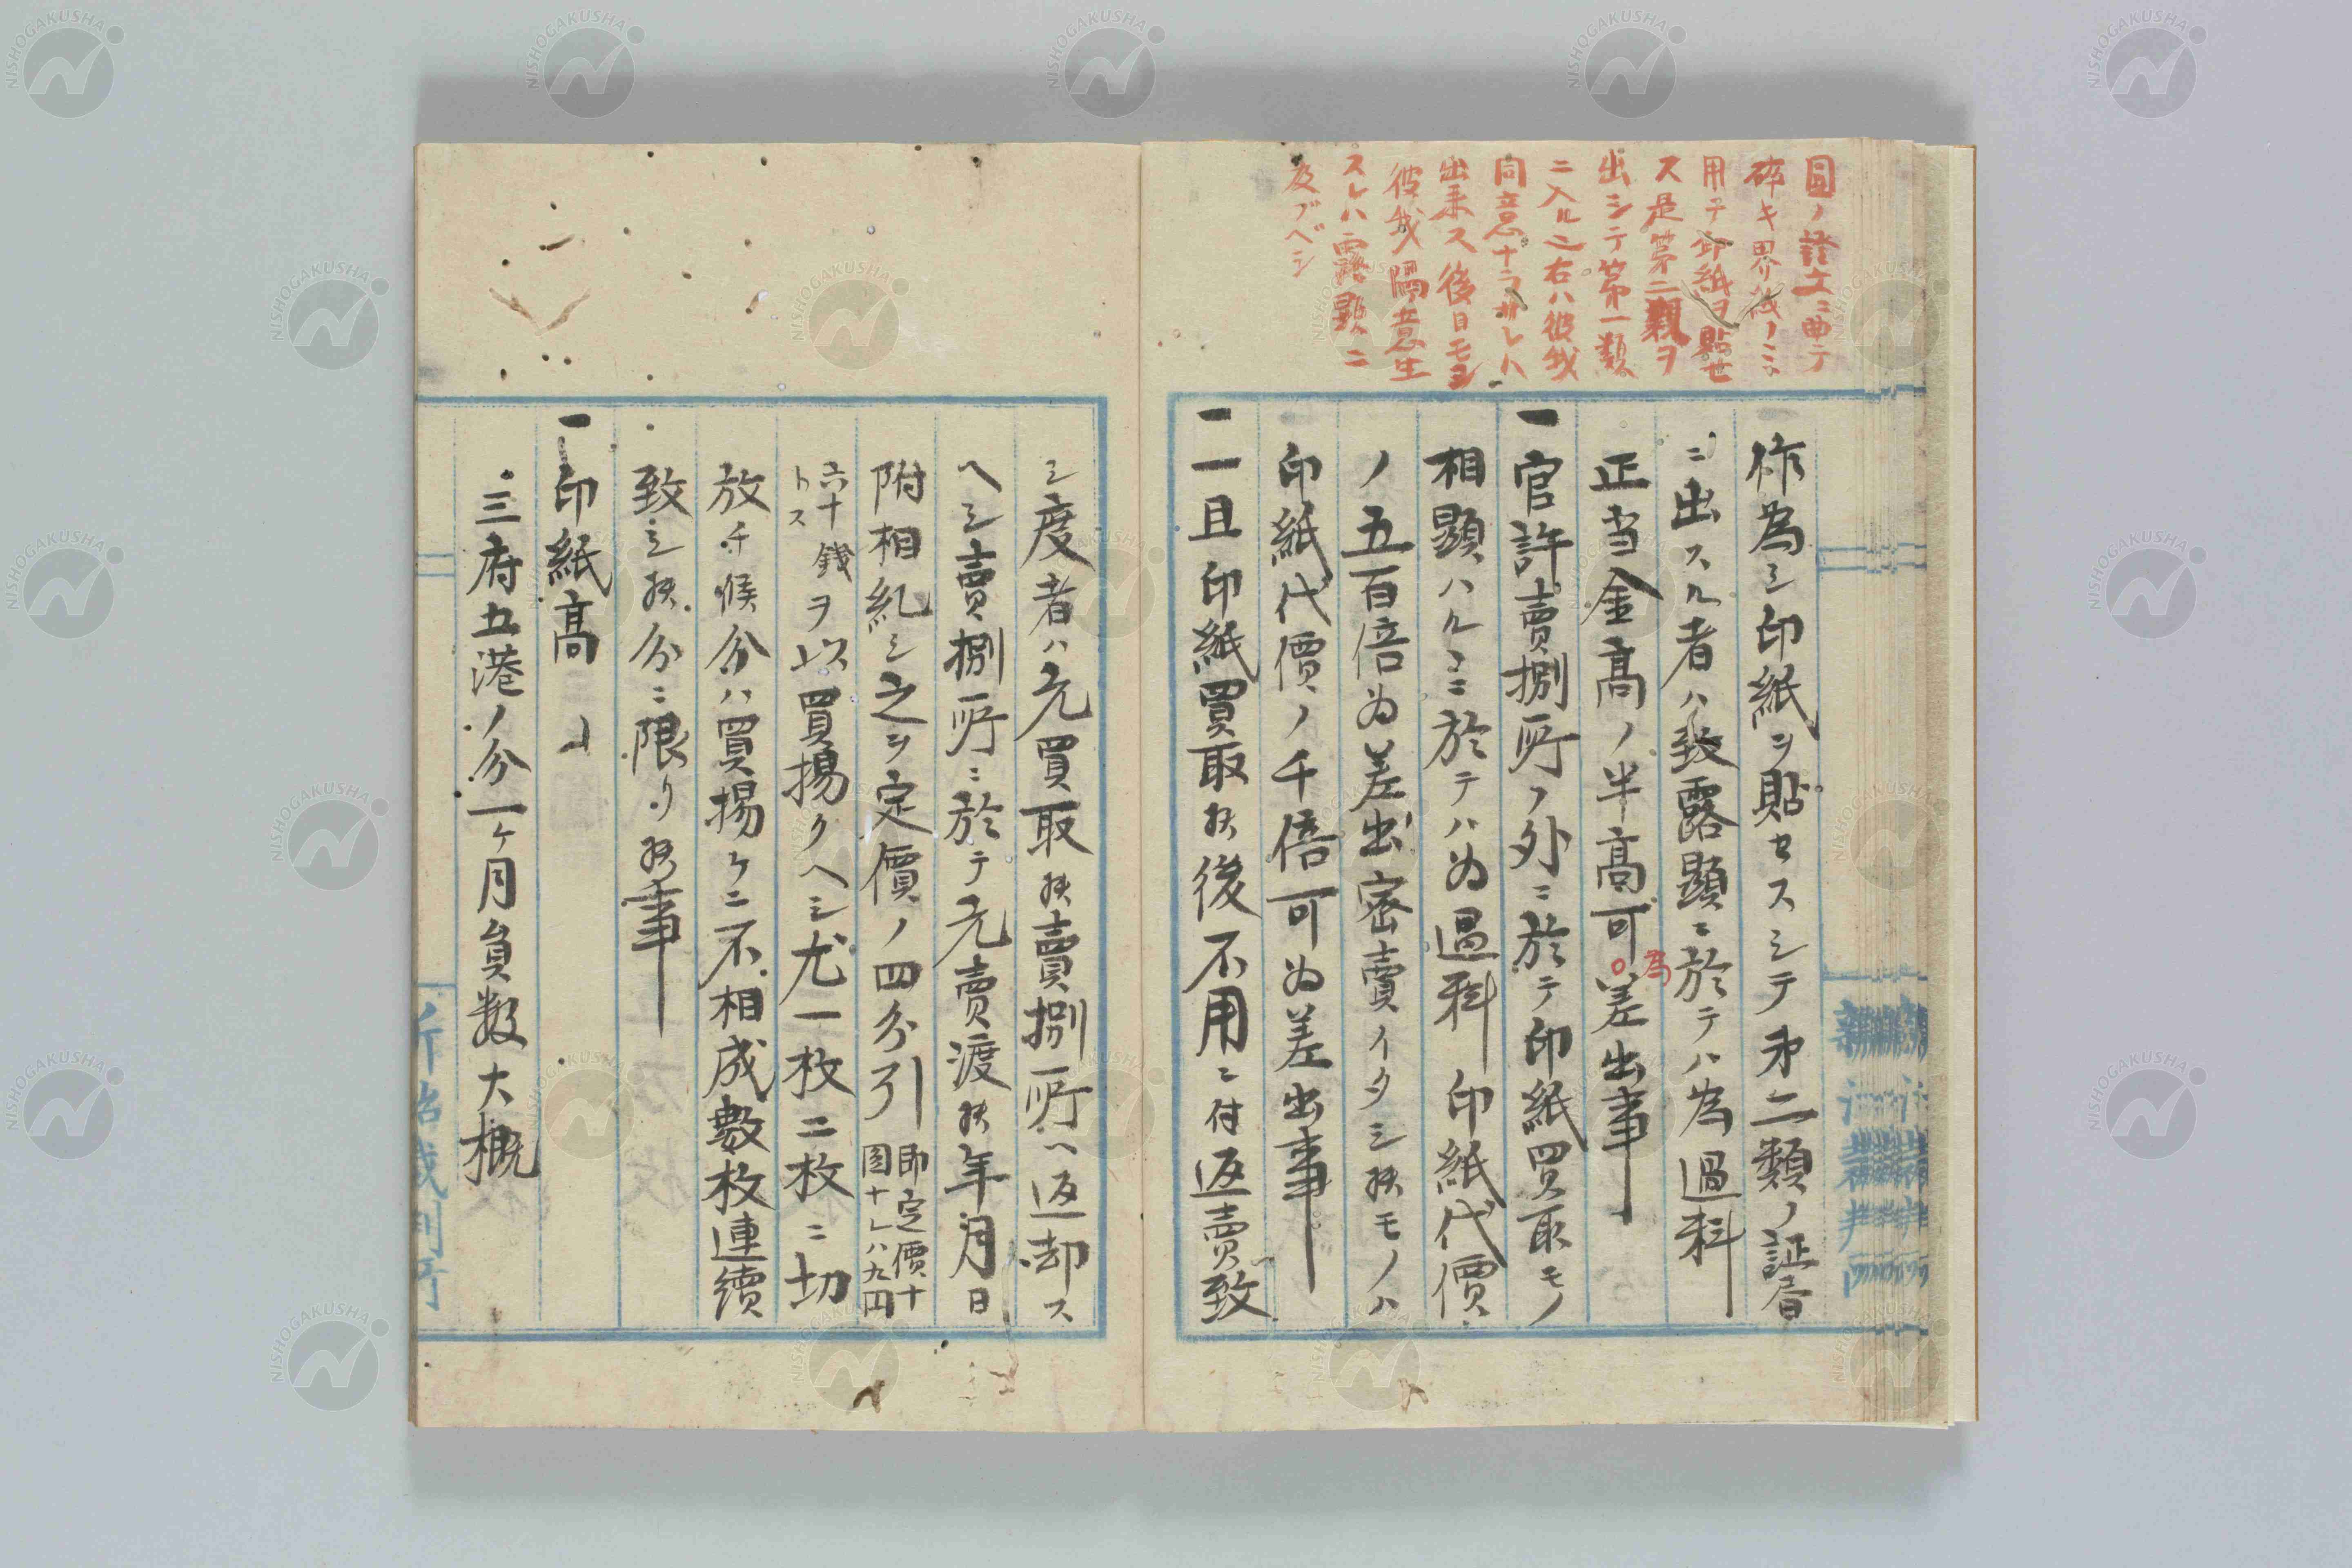 圓ノ證文ニ曲テ
碎キ界リ紙ノミヲ
用テ印紙ヲ貼セ
ス是第二類ヲ
出シテ第一類
ニ入ル之右ハ彼我
同意ナラサレハ
出来ス後日モシ
彼我隔意生
スレハ露顕ニ
及ブベシ
作為シ印紙ヲ貼セスシテ第二類ノ証書
ニ出スル者ハ致露顕ニ於テハ為過料
正当金高ノ半高可為差出事
一官許賣捌所ノ外ニ於テ印紙買取モノ
相顕ハルヽニ於テハ為過料印紙代價
ノ五百倍為差出密賣イタシ候モノハ
印紙代價ノ千倍可為差出事
一一旦印紙買取候後不用ニ付返賣致
シ度者ハ元買取候賣捌所ヘ返却ス
ヘシ賣捌所ニ於テ元賣渡候年月日
附相糺シ之ヲ定價ノ四分引
即定價十
圓ナレハ九円
六十錢
トス
ヲ以買揚クヘシ尤一枚二枚ニ切
放チ候分ハ買揚ケニ不相成數枚連續
致シ候分ニ限リ候事
一印紙高
三府五港ノ分一ケ月員数大概
NISHOGAKUSHA